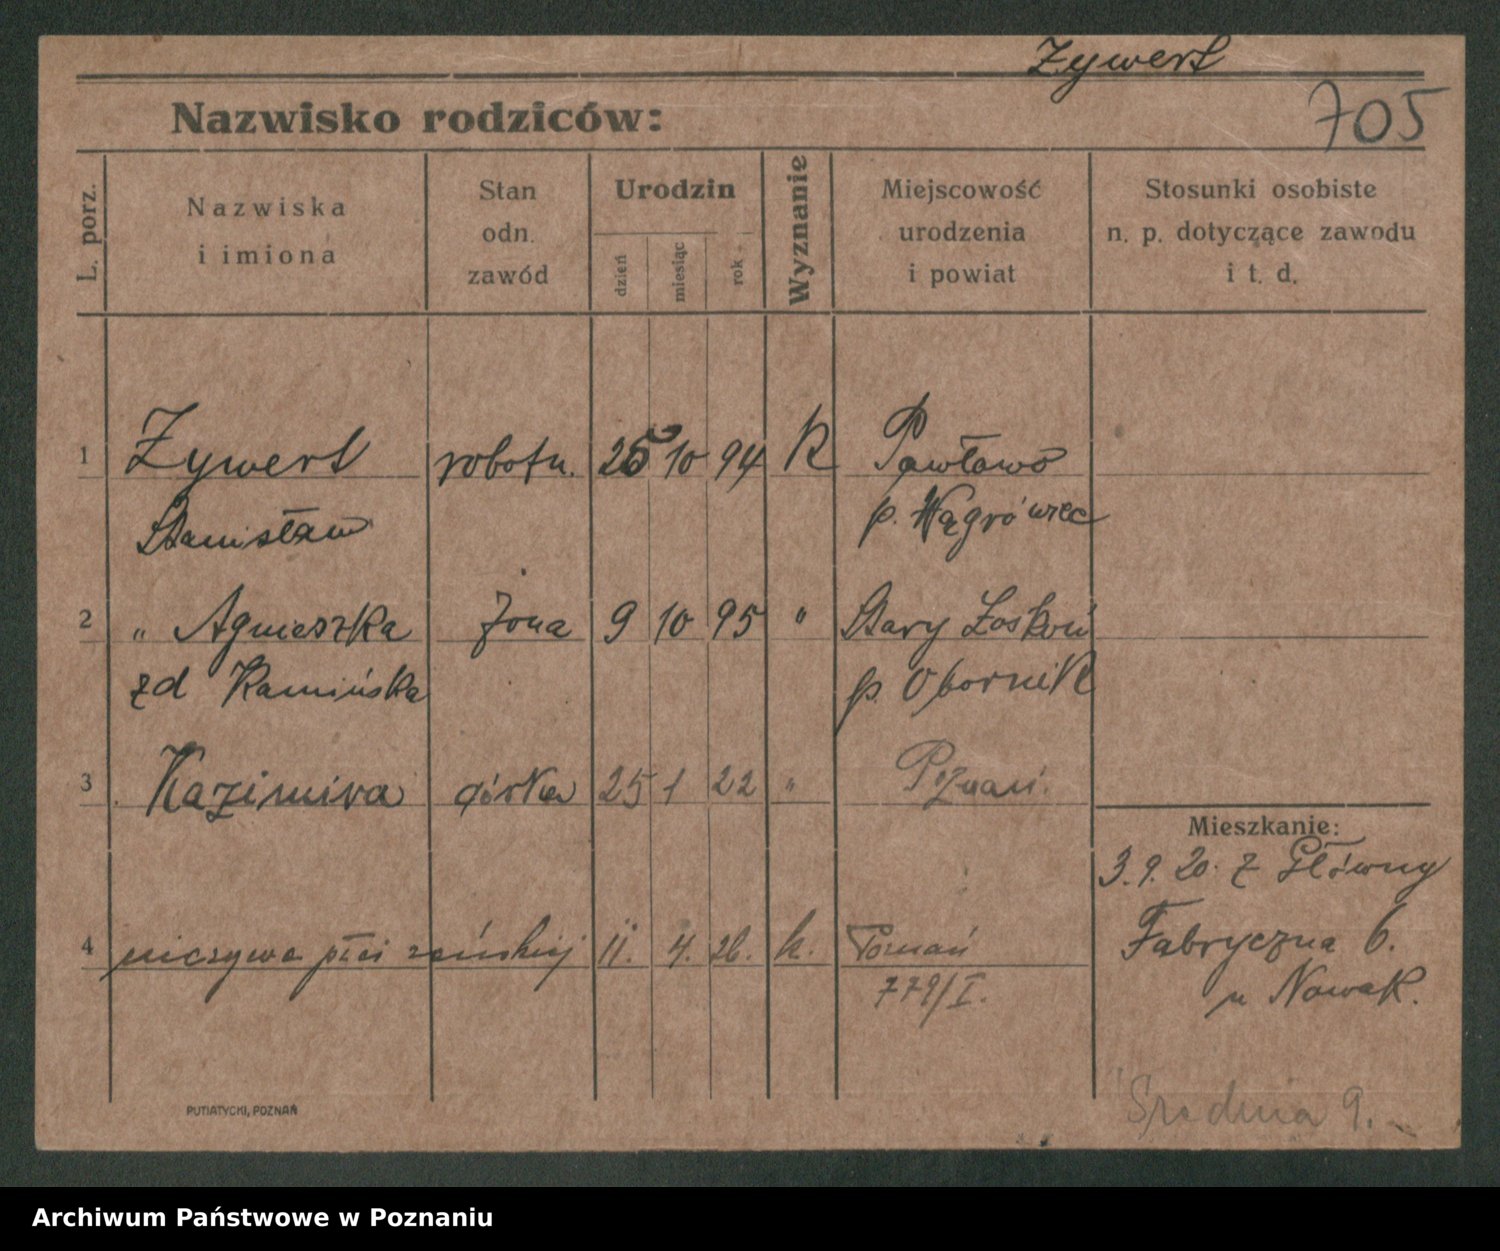 Zywert
Nazwisko rodziców:
705
L. porz.
Nazwiska
i imiona
Stan
odn.
zawód
Urodzin
dzień
miesiąc
rok
Wyznanie
Miejscowość
urodzenia
i powiat
Stosunki osobiste
n. p. dotyczące zawodu
i t. d.
1 Zywert robotn. 25 10 94 K Pawłowo
Stanisław p. Wągrówiec
2 " Agnieszka żona 9 10 95 " Stary Łoskoń
zd Kamińska p. Obornik
3 Kazimira córka 25 1 22 " Poznań.
Mieszkanie:
3.9.20. z Główny
4 płci 11. 4. 26. k. Poznań
Fabryczna 6.
779/I.
u Nowak.
Średnia 9.
PUTIATYCKI, POZNAŃ
Archiwum Państwowe w Poznaniu